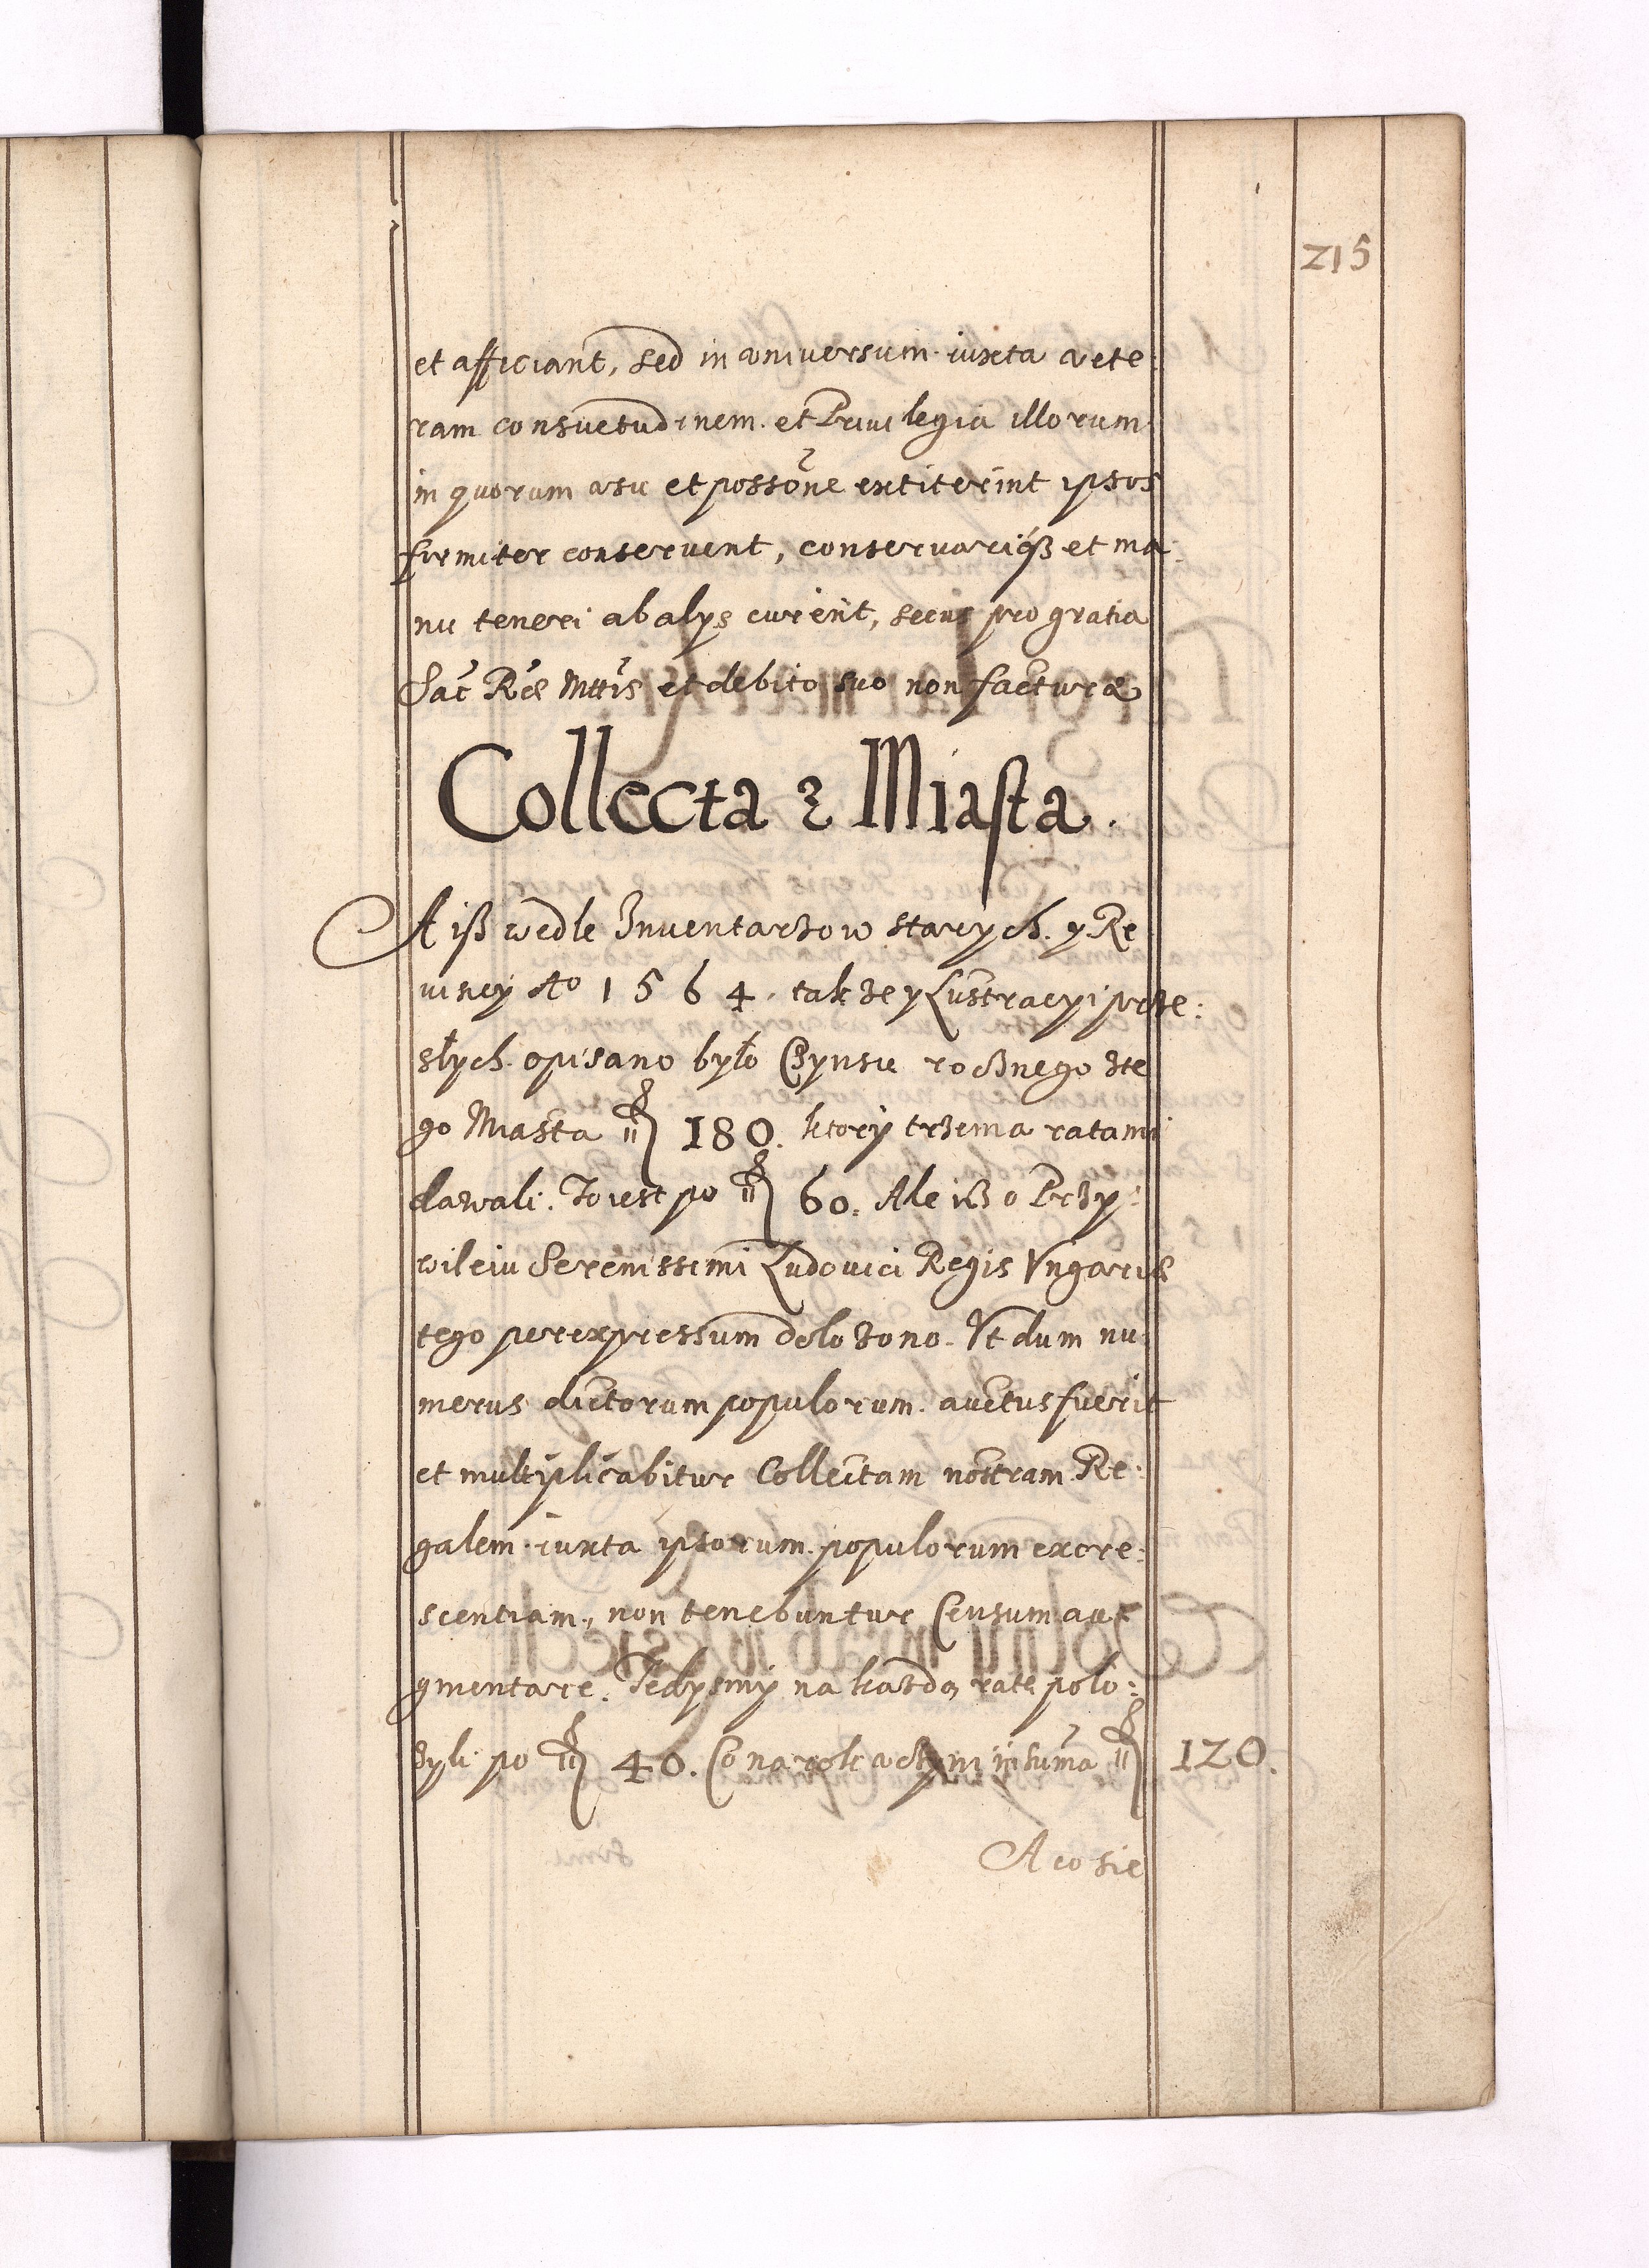 215
et afficiant, sed in universum iuxta vete:
ram consuetudinem et Privilegia illorum
in quorum usu et possone extiterint ipsos
firmiter conservent, conservariqß et ma:
nu teneri ab alys curent, secus pro gratia
Sac Ræ Mttis et debito suo non facturæ
Collecta z Miasta.
A iß wedle Inventarzow starych y Re
visiey Ao 1564. takze y Lustracyi prze:
słych opisano było Czynsu rocznego zte
go Miasta 180. ktory trzema ratami
dawali. To iest po 60. Ale iß o Przy:
wileiu Serenissimi Ludovici Regis Vngariæ
tego per expressum dolozono. Vt dum nu:
merus dictorum populorum auctus fuerit
et multiplicabitur Collectam nostram Re:
galem iuxta ipsorum populorum excre:
scentiam, non tenebuntur Censum au
gmentare. Tedysmy na kazdą ratę polo:
zyli po 40. Co na rok uczyni in suma 120.
A co sie